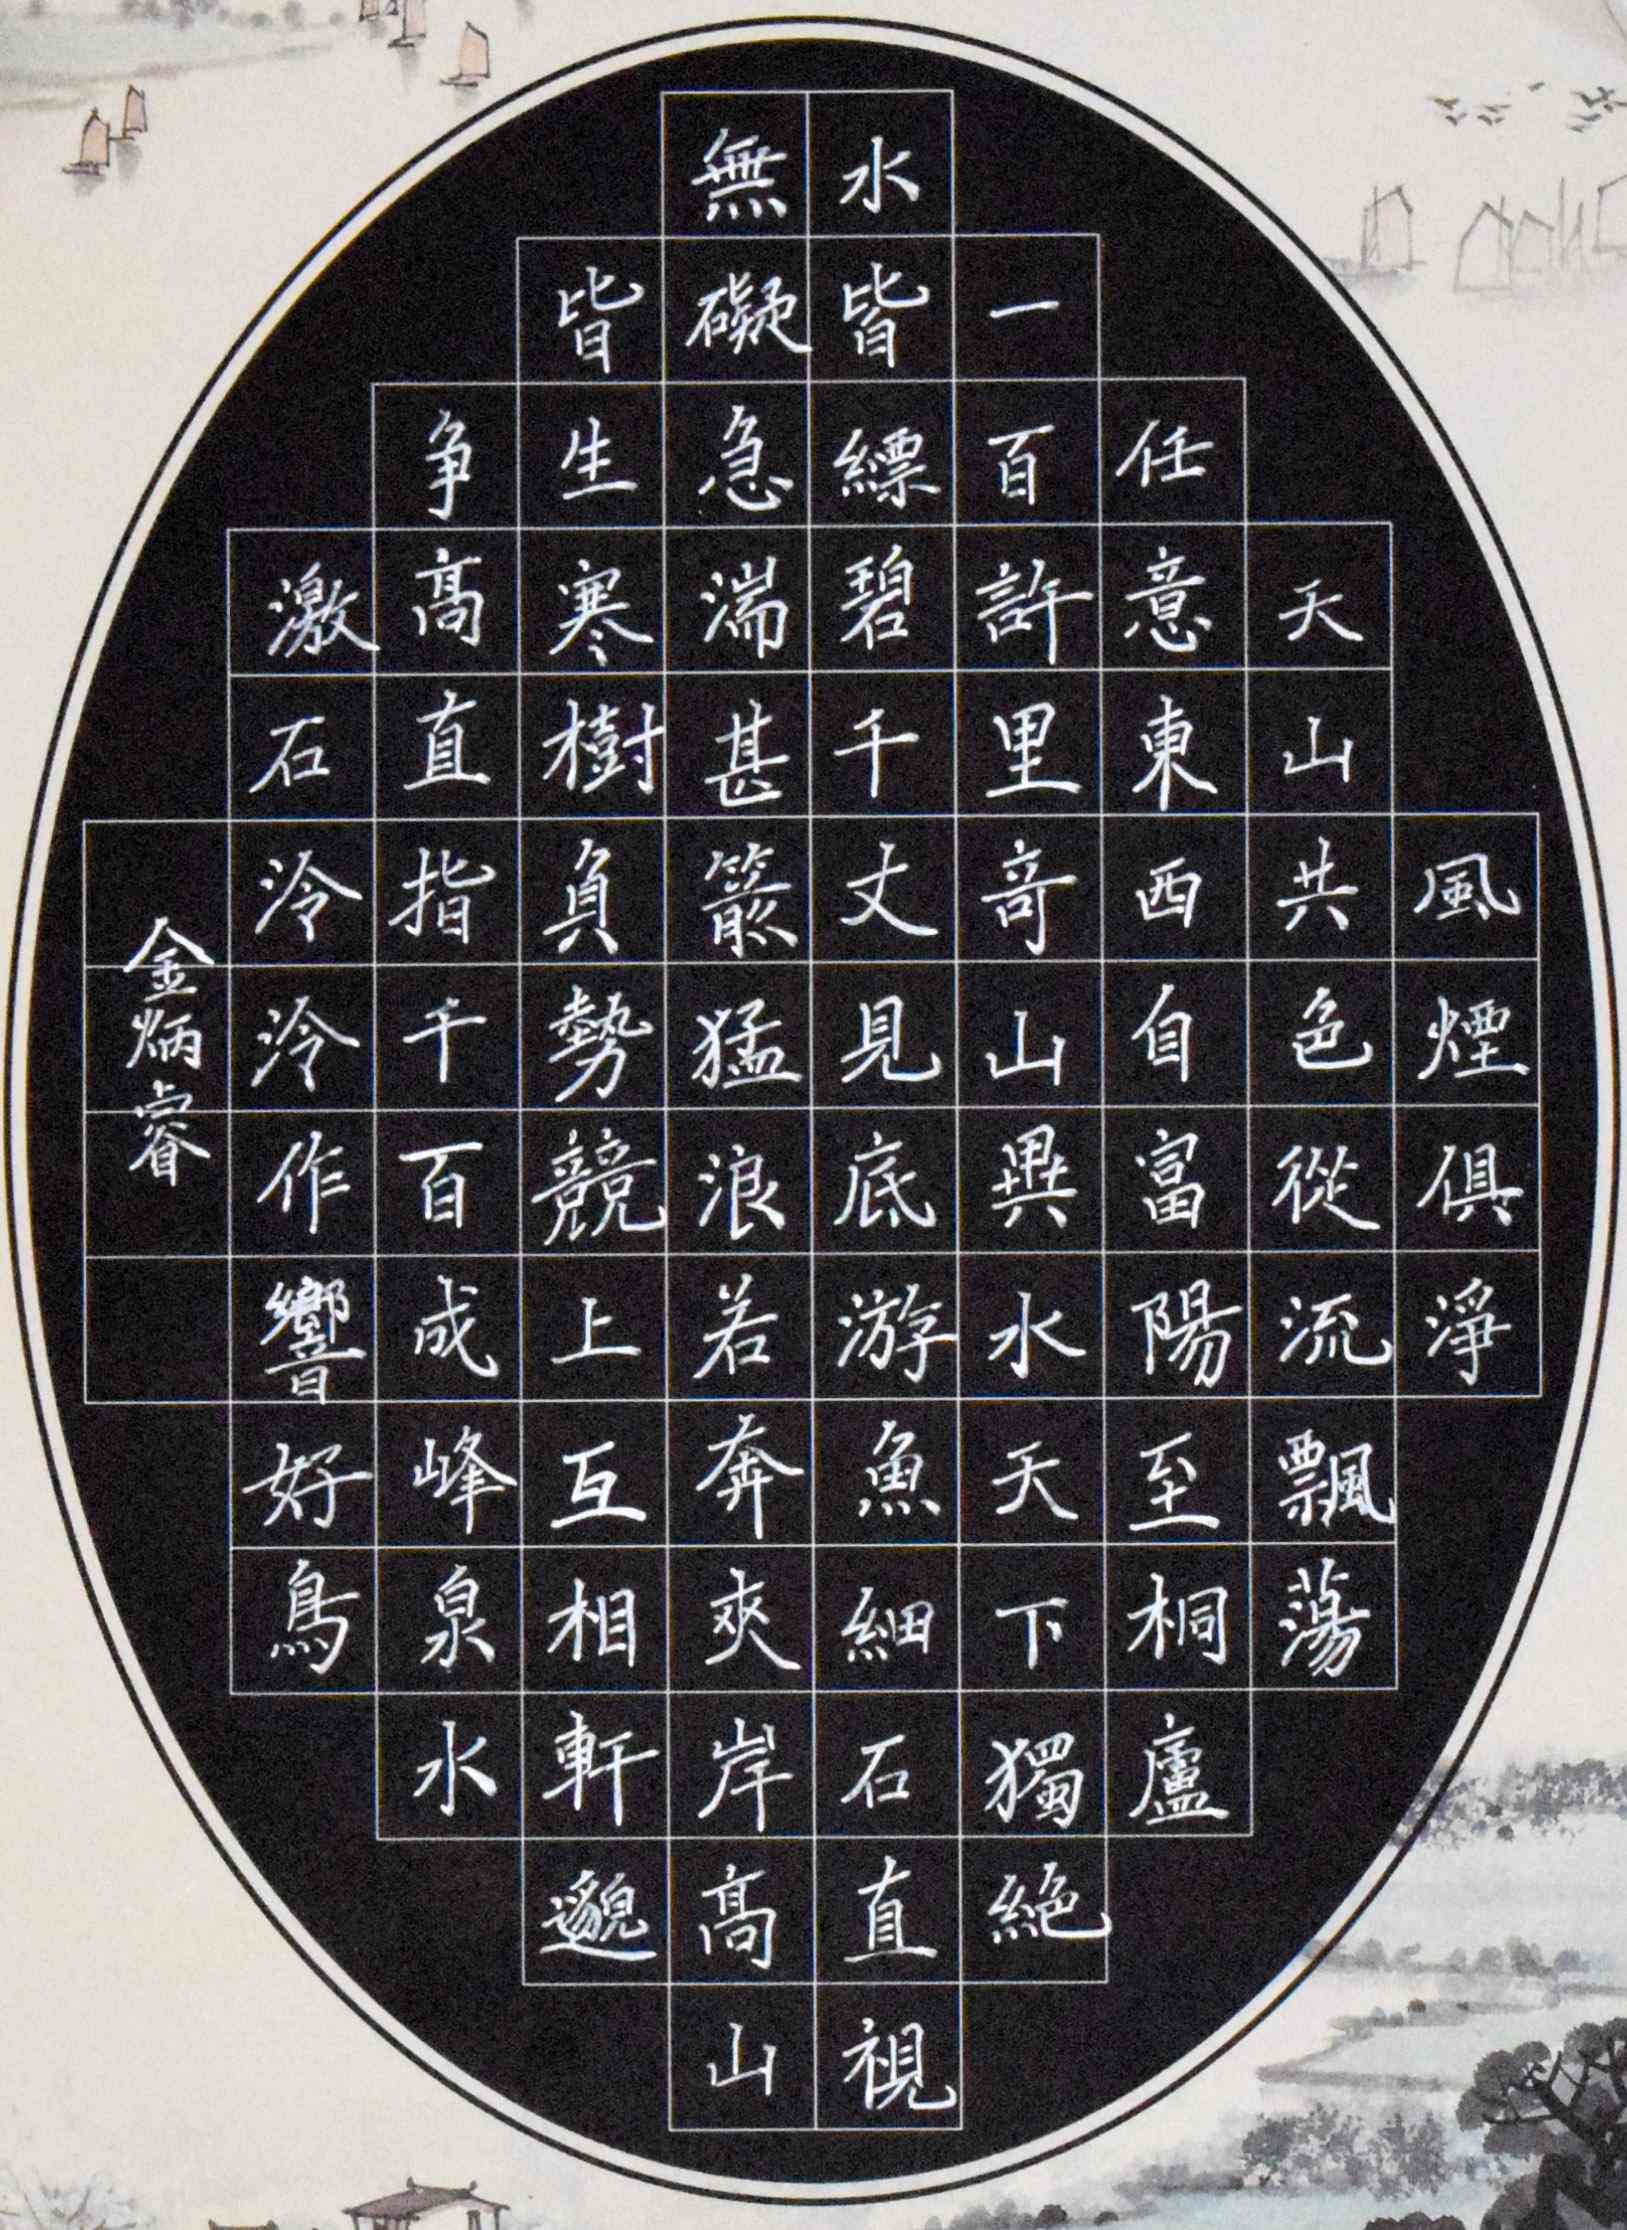 風煙俱淨
天山共色從流飄蕩
任意東西自富陽至桐廬
一百許里竒山異水天下獨絶
水皆縹碧千丈見底游魚細石直視
無礙急湍甚箭猛浪若奔夾岸髙山
皆生寒樹負勢競上互相軒邈
争髙直指千百成峰泉水
激石泠泠作響好鳥
金炳睿